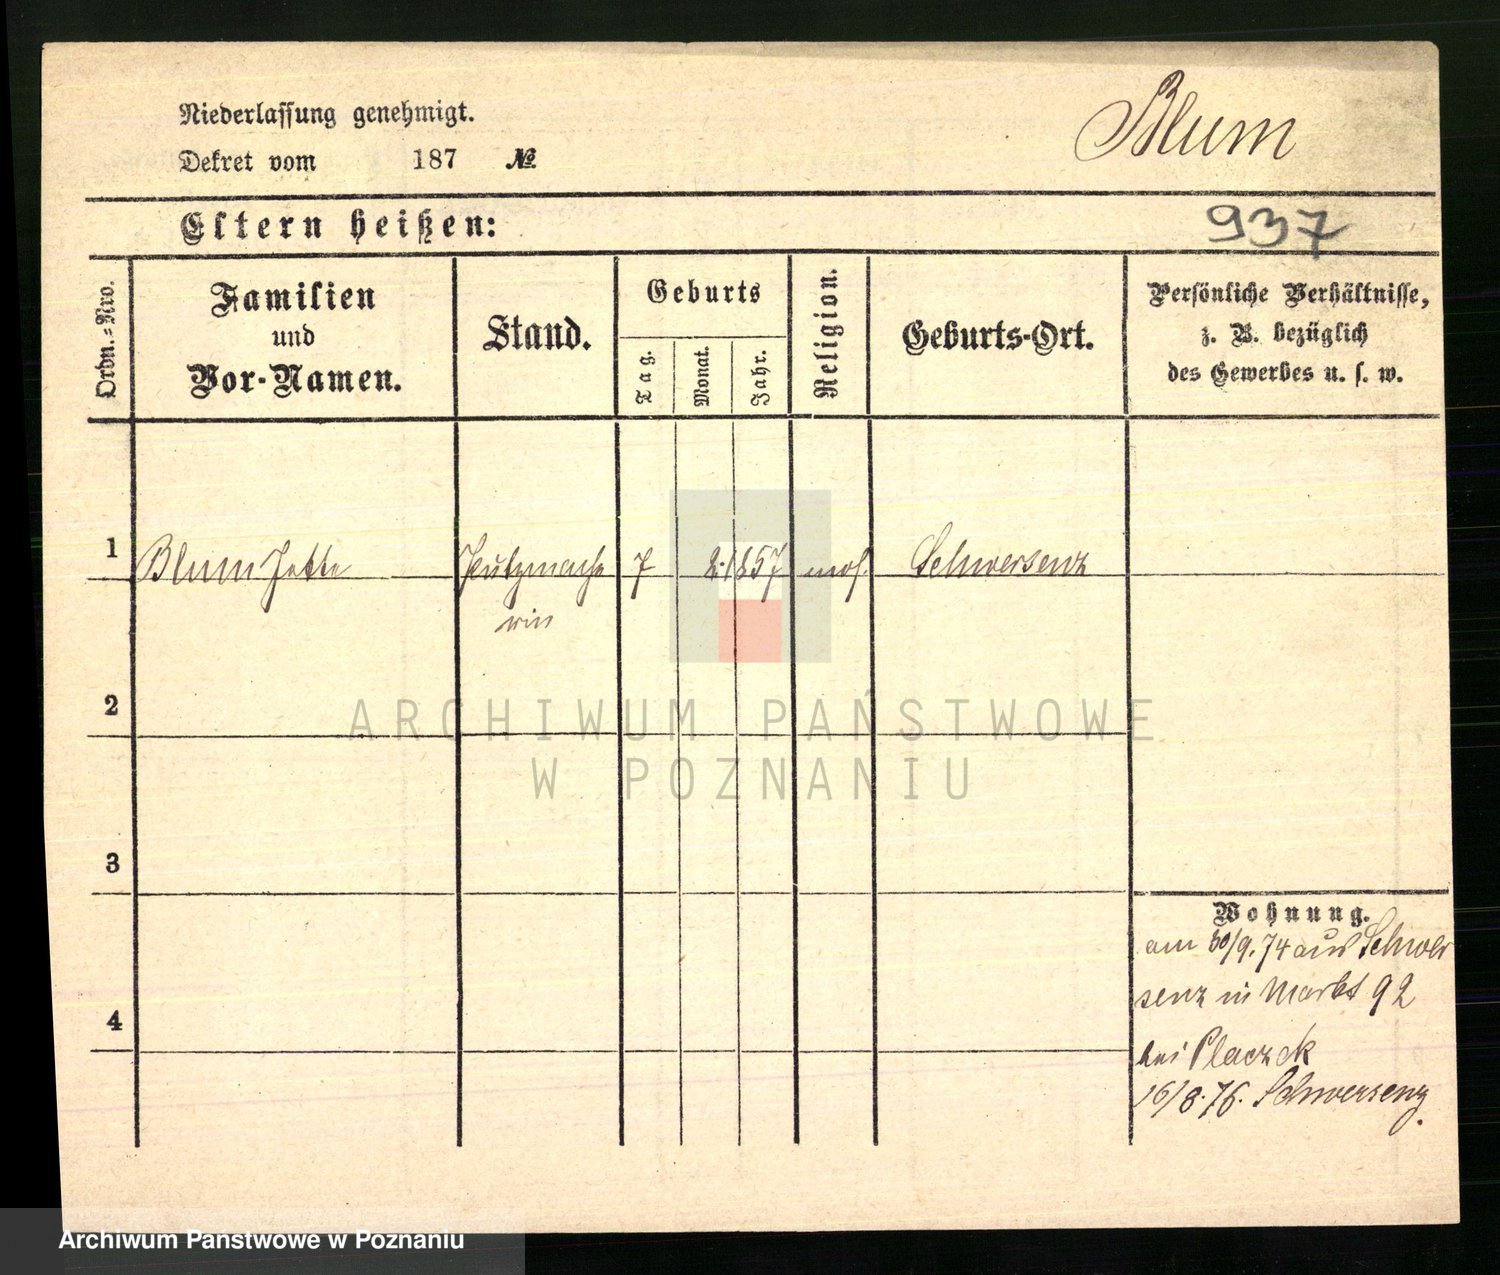 Niederlassung genehmigt.
Dekret vom 187 №
Blum
Eltern heißen:
937
Ordn.-Nro.
Familien
und
Vor-Namen.
Stand.
Geburts
Tag.
Monat.
Jahr.
Religion.
Geburts-Ort.
Persönliche Verhältnisse,
z. B. bezüglich
des Gewerbes u. s. w.
1 Blum Jette Putzmache 7 2. 1857 mos. Schwersenz
rin
2
ARCHIWUM PAŃSTWOWE
W POZNANIU
3
Wohnung.
am 30/9. 74 aus Schwer
senz in Markt 92
4
bei Placzek
16/8. 76. Schwersenz.
Archiwum Państwowe w Poznaniu